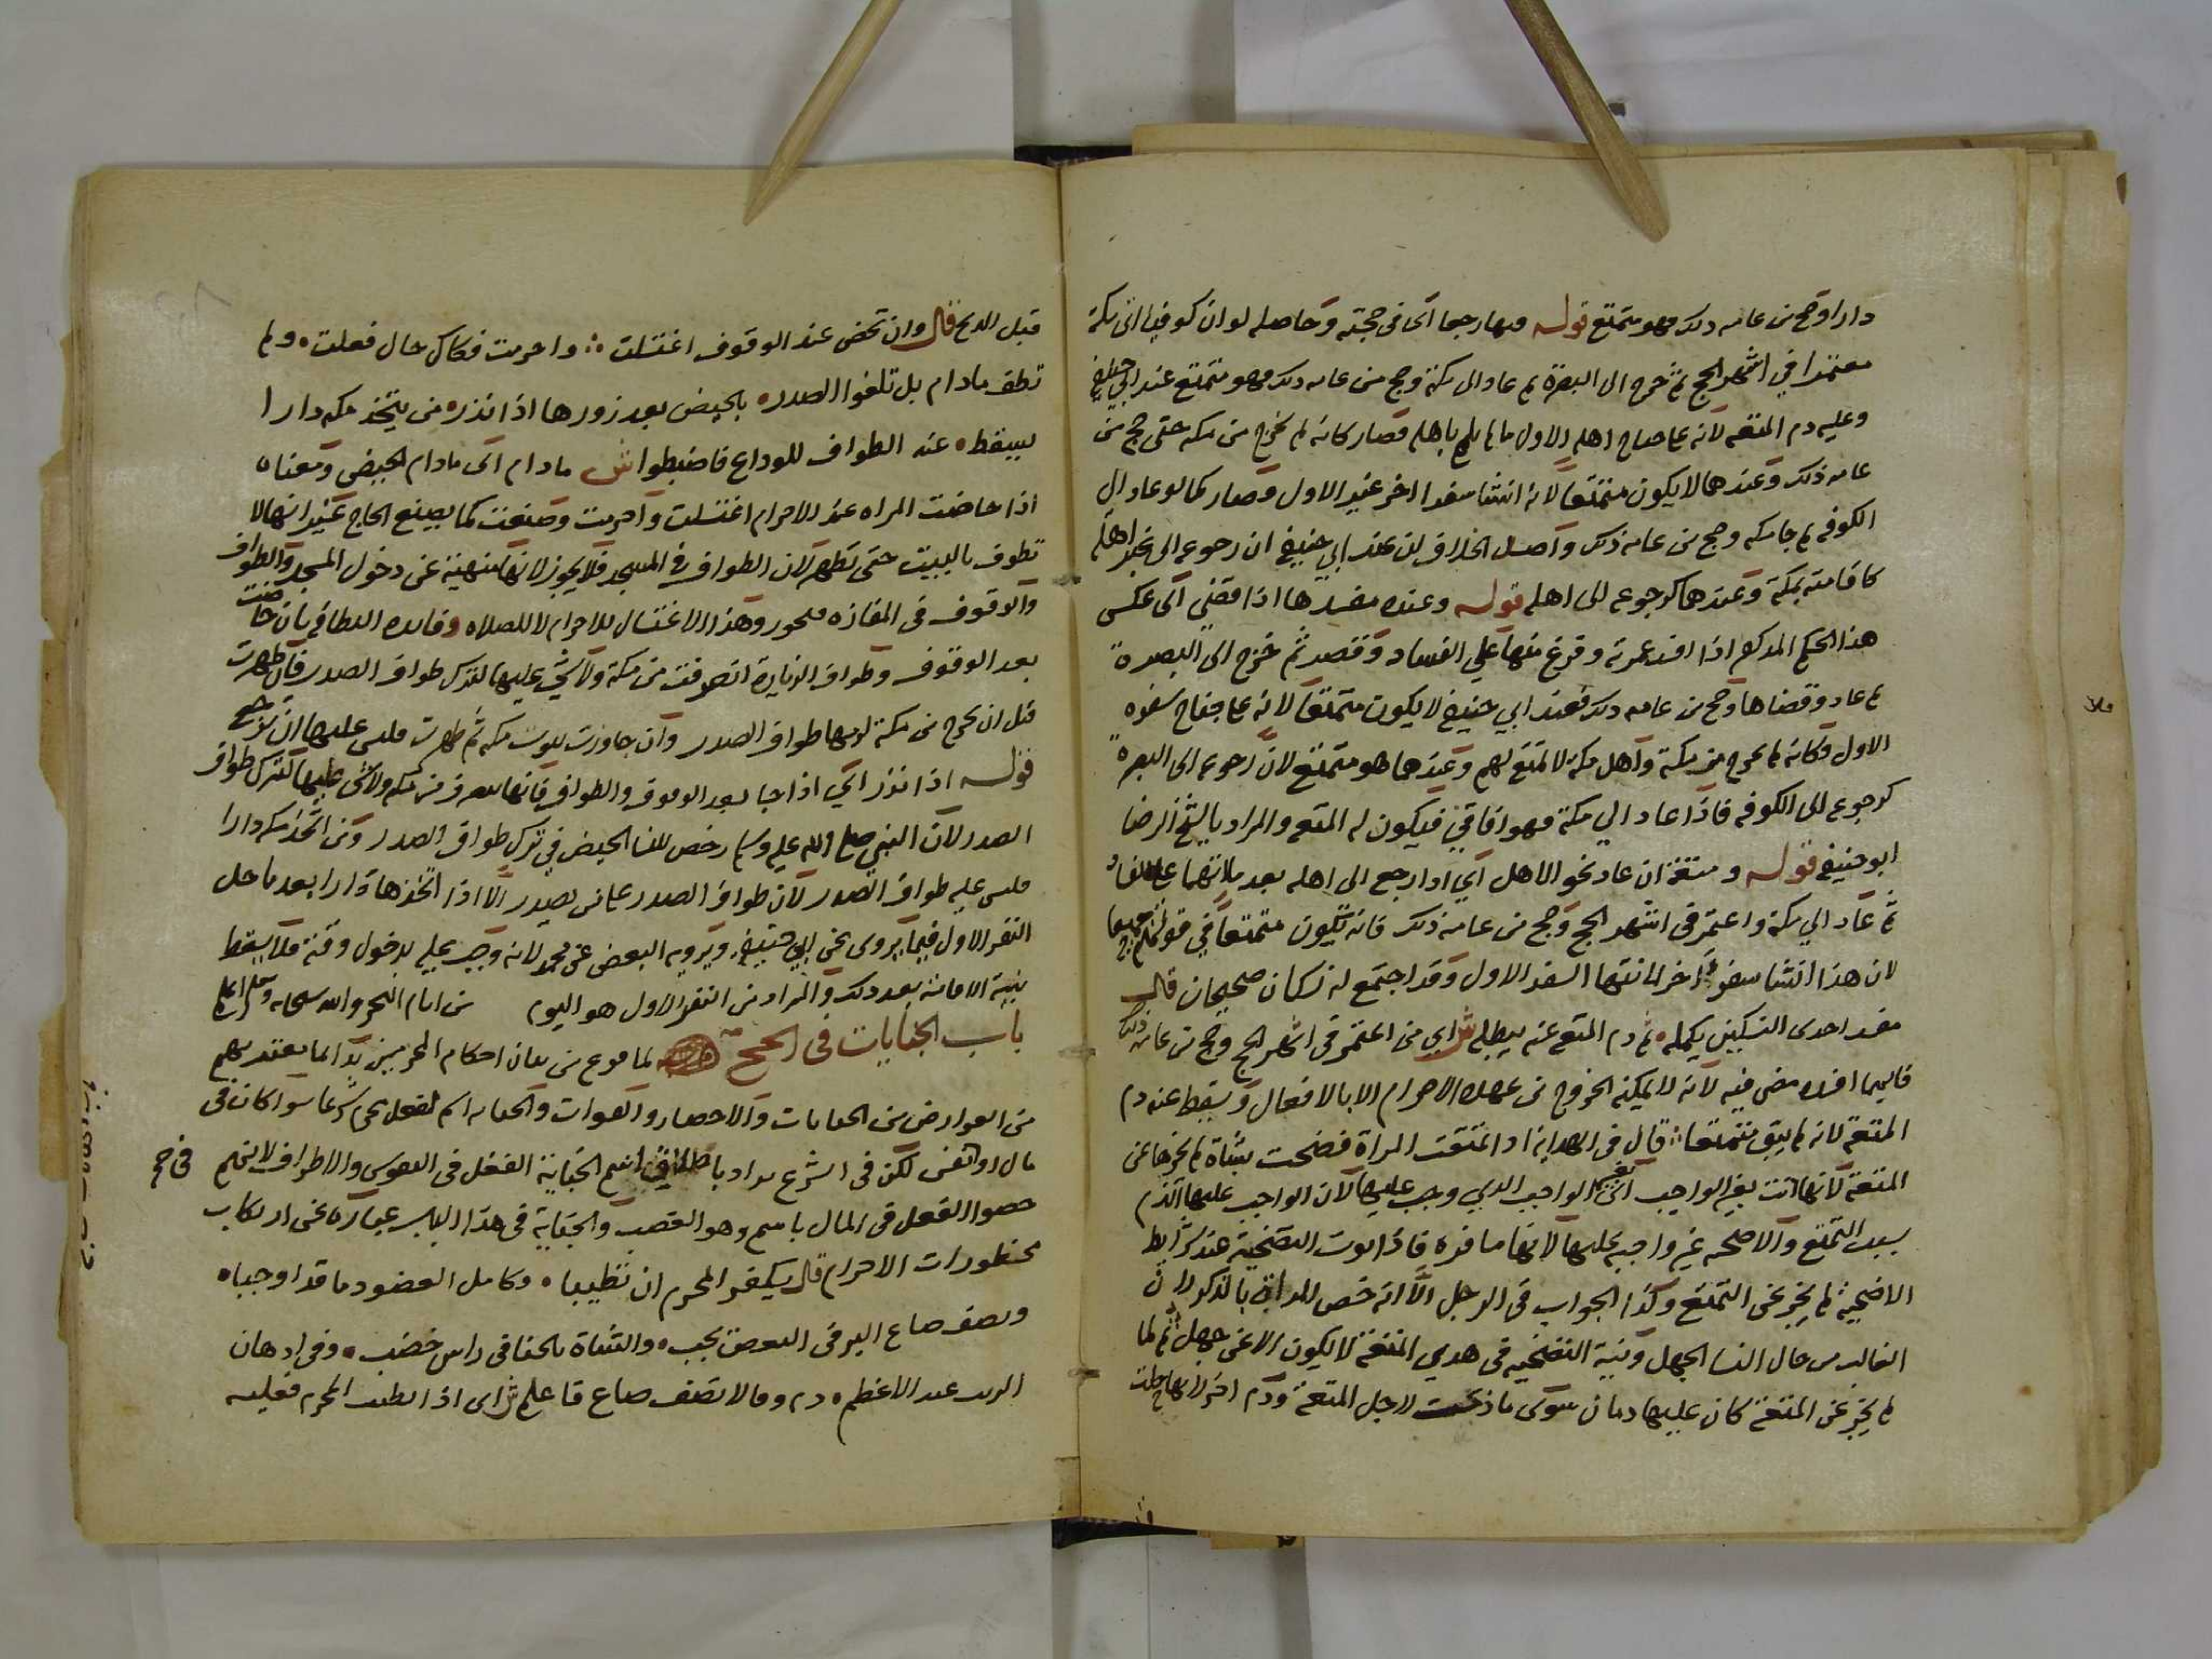 دارا وحج من عامه ذلك فهو متمتع قوله فيها رجعا اى فى حجته وحاصله لو ان كوفيا اتى مكة
معتمرا في اشهر الحج ثم خرج الى البصرة ثم عاد الى مكة وحج من عامه ذلك فهو متمتع عند ابي حنيفة
وعليه دم المتعه لانه على اهله الاول ما لم يلم باهله فصار كانه لم يخرج من مكه حتى حج من
عامه ذلك وعندهما لا يكون متمتعا لانه انشا سفرا اخر غير الاول فصار كما لو عاد الى
الكوفه ثم جا مكه وحج من عامه ذلك واصل الخلاف ان عند ابي حنيفة ان رجوعه الى غير اهله
كاقامته بمكة وعندهما كرجوعه الى اهله قوله وعنده مفسدها اذا قضى اى عكس
هذا الحكم المذكور اذا افسد عمرته وفرغ منها علي الفساد وقصر ثم خرج الى البصرة
ثم عاد وقضاها وحج من عامه ذلك فعند ابي حنيفة لا يكون متمتعا لانه على سفره
الاول وكانه لم يخرج من مكة واهل مكه لا تمتع لهم وعندهما هو متمتع لان رجوعه الى البصرة
كرجوعه الى الكوفه فاذا عاد الي مكة فهو افاقي فيكون له المتعه والمراد بالشيخ الرضا
ابو حنيفة قوله ومتعة ان عاد نحو الاهل اي اذا رجع الى اهله بعد ما اتمها على الفساد
ثم عاد الي مكة واعتمر فى اشهر الحج وحج من عامه ذلك فانه يكون متمتعا في قولهم جميعا
لان هذا انشا سفر اخر لانتها السفر الاول وقد اجتمع له نسكان صحيحان قال
مفسد احدى النسكين يكمله ثم دم المتع عنه يبطله ش اي من اعتمر فى اشهر الحج وحج من عامه ذلك
فايهما افسده مضى فيه لانه لا يمكنه الخروج من عهدة الاحرام الا بالافعال وسقط عنه دم
المتعه لانه لم يبق متمتعا قال فى الهداية اذا تمتعت المراة فضحت بشاة لم يجزها عن
المتعة لانها اتت بغير الواجب اى الواجب الذي وجب عليها لان الواجب عليها الدم
بسبب التمتع والاضحيه غير واجبه عليها لانها مسافره فاذا نوت التضحية عند شرايط
الاضحية لم يجز عن التمتع وكذا الجواب فى الرجل الا انه خص المراة بالذكر لان
الغالب من حال النسا الجهل ونية التضحيه فى هدي المتعة لا يكون الا عن جهل ثم لما
لم يجز عن المتعة كان عليها دمان سوى ما ذبحت لاجل المتعة ودم اخر لانها حلت
قبل الذبح قال وان تحض عند الوقوف اغتسلت واحرمت فكاكل حال فعلت ولم
تطف مادام بل تلغوا الصدره بالحيض بعد زورها اذا نذره من يتخذ مكه دارا
يسقط عنه الطواف للوداع فاضبطوا ش مادام اى مادام الحيض ومعناه
اذا حاضت المراه عند الاحرام اغتسلت واحرمت وصنعت كما يصنع الحاج غير انها لا
تطوف بالبيت حتى تطهر لان الطواف فى المسجد فلا يجوز لانها منهية عن دخول المسجد والطواف
والوقوف فى المفازه فيجوز وهذا الاغتسال للاحرام لا للصلاه فان حاضت
بعد الوقوف وطواف الزيارة انصرفت من مكة ولا شي عليها لترك طواف الصدر فان طهرت
قبل ان تخرج من مكة لزمها طواف الصدر وان جاوزت بيوت مكه ثم طهرت فليس عليها ان ترجع
قوله اذا نذر اي اذا جا بعد الوقوف والطواف فانها تنصرف من مكه ولا شى عليها لترك طواف
الصدر لان النبي صلى الله عليه وسلم رخص للنسا الحيض في ترك طواف الصدر ومن اتخذ مكه دارا
فليس عليه طواف الصدر لان طواف الصدر على من يصدر الا اذا اتخذها دارا بعد ما حل
النفر الاول فيما يروى عن ابي حنيفة ويرويه البعض عن محمد لانه وجب عليه بدخول وقته فلا يسقط
بنية الاقامة بعد ذلك والمراد من النفر الاول هو اليوم من ايام النحر والله سبحانه وتعالى اعلم
باب الجنايات فى الحج لما فرغ من بيان احكام المحرمين بدا بما يعتريهم
من العوارض من الجنايات والاحصار والفوات والجنايه اسم لفعل محرم شرعا سوا كان فى
مال او نفس لكن فى الشرع يراد باطلاق اسم الجناية الفعل فى النفوس والاطراف لانهم فى حج
خصوا الفعل فى المال باسم وهو الغصب والجناية فى هذا الباب عبارة عن ارتكاب
محظورات الاحرام قال يكفر المحرم ان تطيبا وكامل العضو دما قد اوجباه
ونصف صاع البر فى البعض يجب والشاة بالحنا فى راس خضب وفى ادهان
الزيت عند الاعظم دم وقالا نصف صاع فاعلم ش اى اذا تطيب المحرم فعليه